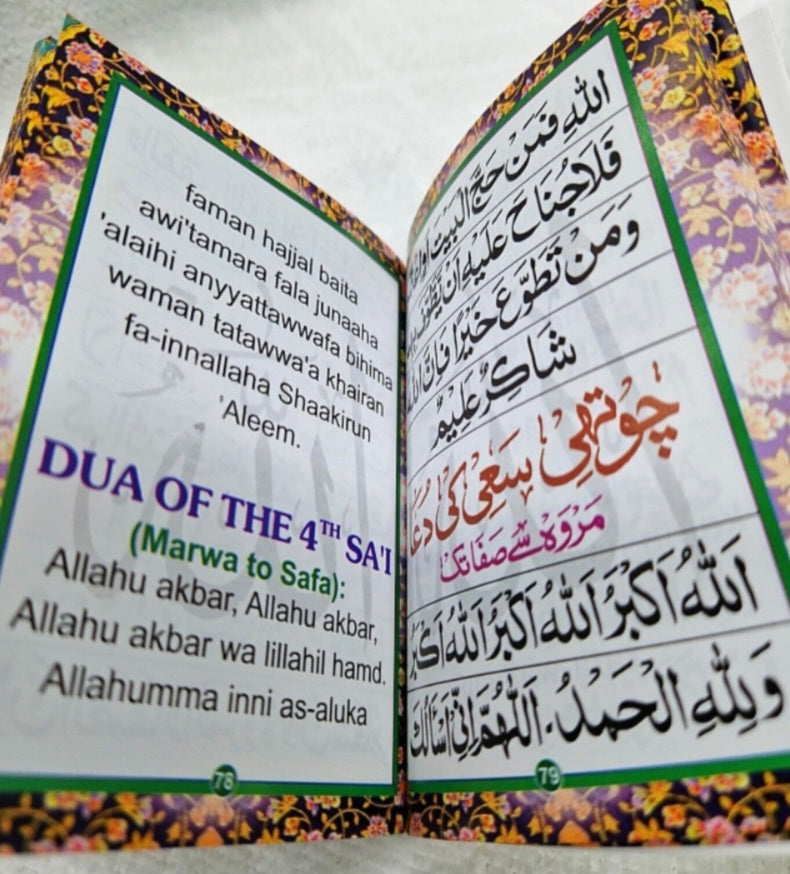 faman hajjal baita
awi'tamara fala junaaha
'alaihi anyyattawwafa bihima
waman tatawwa'a khairan
fa-innallaha Shaakirun
'Aleem.
DUA OF THE 4TH SA'I
(Marwa to Safa):
Allahu akbar, Allahu akbar,
Allahu akbar wa lillahil hamd.
Allahumma inni as-aluka
78
اللهِ فَمَنْ حَجَّ الْبَيْتَ
فَلَا جُنَاحَ عَلَيْهِ اَنْ يَّطَّوَّفَ
وَمَنْ تَطَوَّعَ خَيْرًا فَاِنَّ اللهَ
شَاكِرٌ عَلِيْمٌ
چوتھی سَعِی کی دُعَا
مَروَہ سے صَفَا تک
اَللهُ اَكْبَرُ اَللهُ اَكْبَرُ اَللهُ اَكْبَرُ
وَلِلّٰهِ الْحَمْدُ. اَللّٰهُمَّ اِنِّىْ اَسْاَلُكَ
79